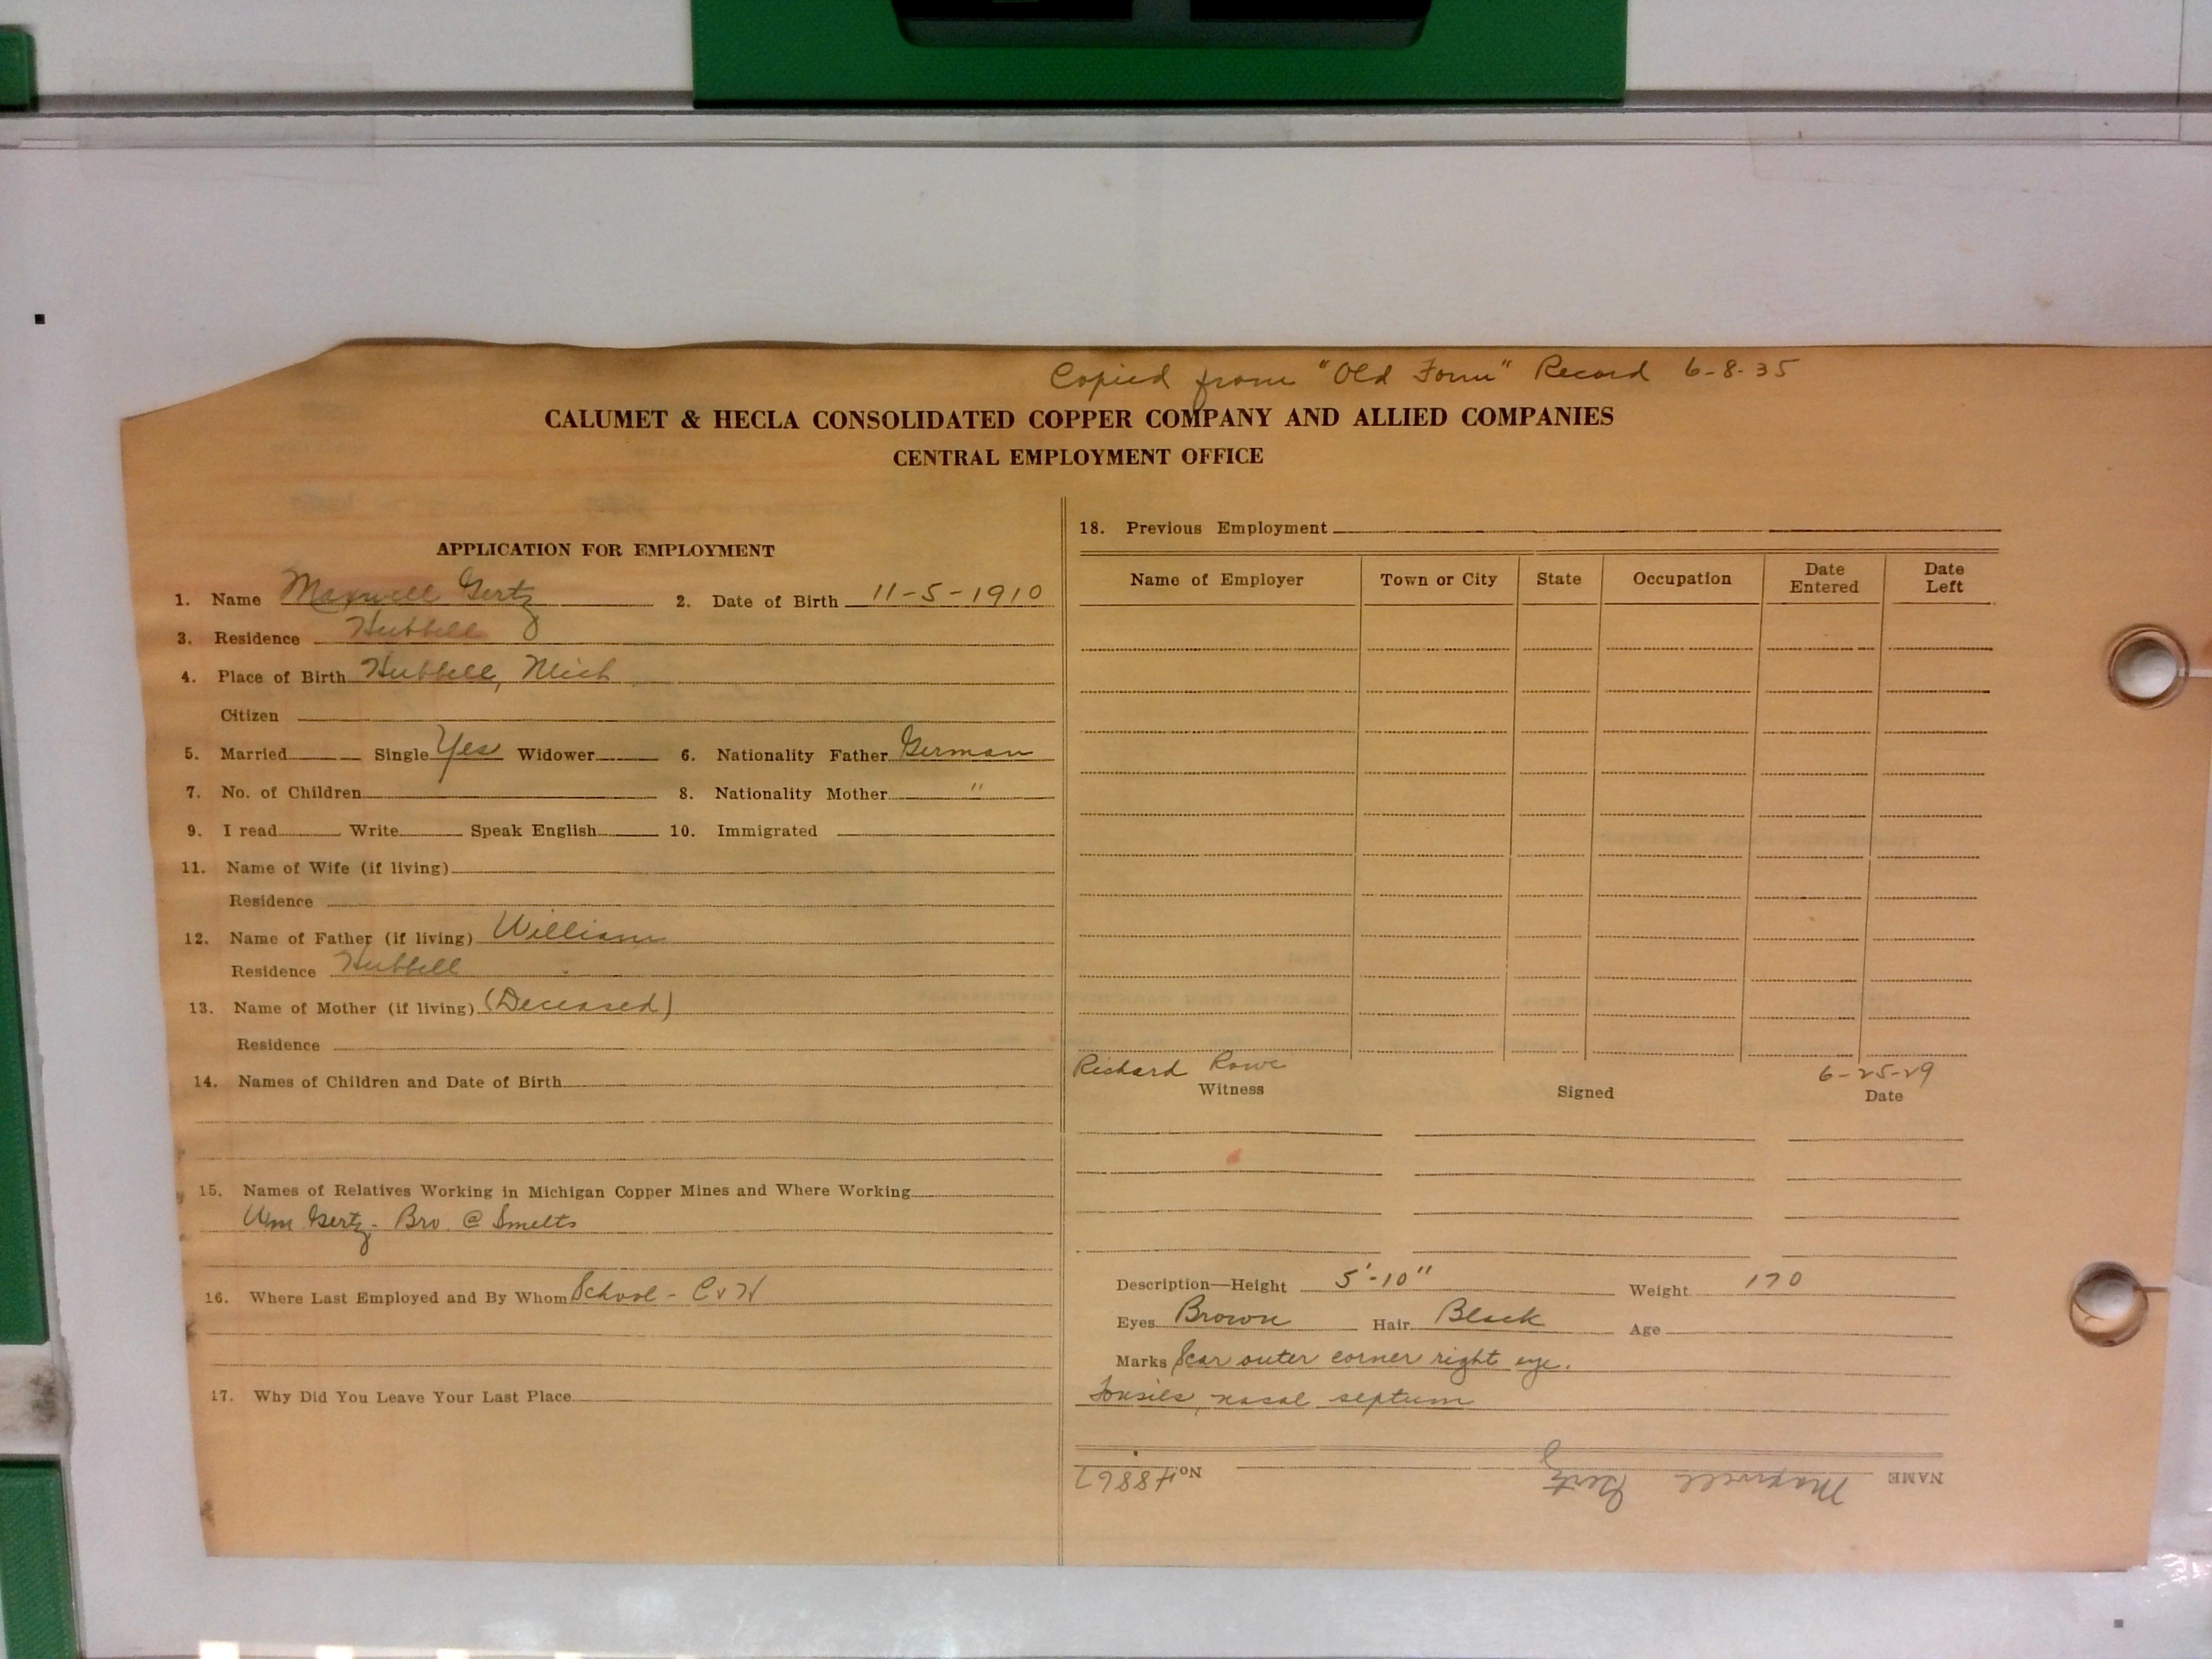 Copied from "Old Form" Record 6-8-35
CALUMET & HECLA CONSOLIDATED COPPER COMPANY AND ALLIED COMPANIES
CENTRAL EMPLOYMENT OFFICE
APPLICATION FOR EMPLOYMENT
1. Name Maxwell Gertz 2. Date of Birth 11-5-1910
3. Residence Hubbell
4. Place of Birth Hubbell, Mich
Citizen
5. Married Single Yes Widower 6. Nationality Father German
7. No. of Children 8. Nationality Mother "
9. I read Write Speak English 10. Immigrated
11. Name of Wife (if living)
Residence
12. Name of Father (if living) William
Residence Hubbell
13. Name of Mother (if living) (Deceased)
Residence
14. Names of Children and Date of Birth
15. Names of Relatives Working in Michigan Copper Mines and Where Working
Wm Gertz - Bro. @ Smelts
16. Where Last Employed and By Whom School - C v H
17. Why Did You Leave Your Last Place
18. Previous Employment
Name of Employer Town or City State Occupation Date Entered Date Left
Richard Rowe 6-25-29
Witness Signed Date
Description—Height 5'-10" Weight 170
Eyes Brown Hair Black Age
Marks Scar outer corner right eye.
Tonsils, nasal septum
NAME Maxwell Gertz No.